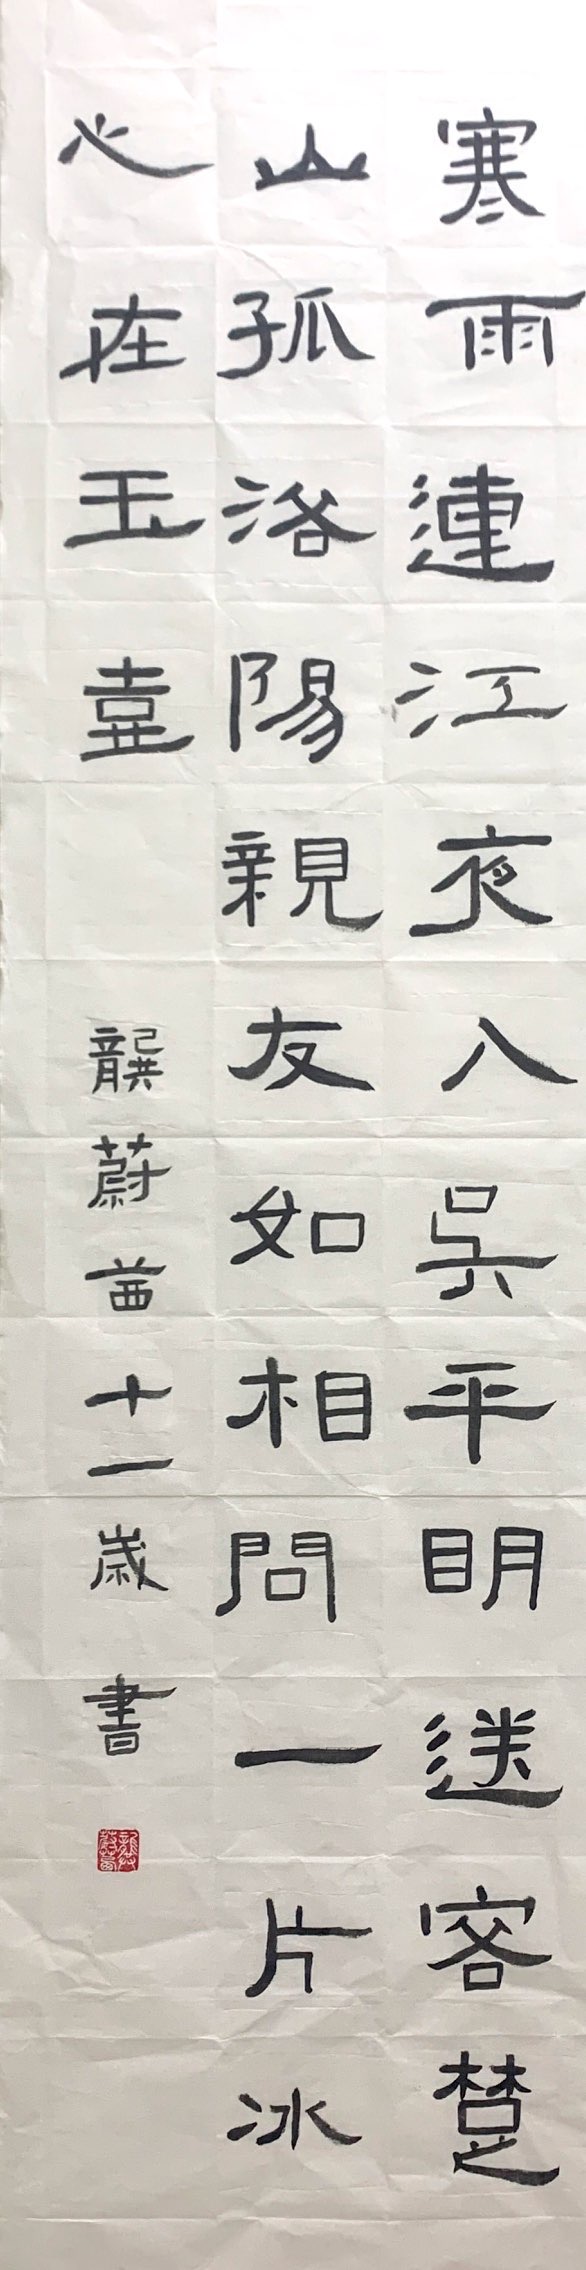 寒雨連江夜入吳平明送客楚
山孤洛陽親友如相問一片冰
心在玉壺
龔蔚茜十一歲書